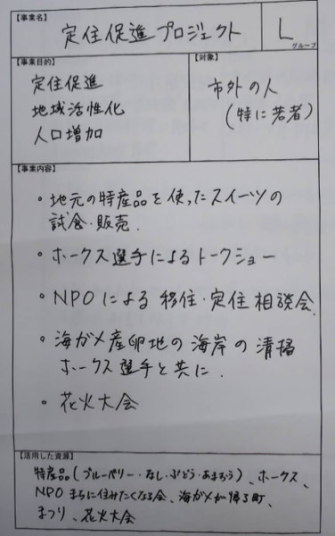 【事業名】
定住促進プロジェクト
L
グループ
【事業目的】
定住促進
地域活性化
人口増加
【対象】
市外の人
(特に若者)
【事業内容】
・地元の特産品を使ったスイーツの
試食・販売.
・ホークス選手によるトークショー
・NPOによる移住・定住相談会.
・海ガメ産卵地の海岸の清掃
ホークス選手と共に.
・花火大会
【活用した資源】
特産品(ブルーベリー・なし・ぶどう・あまおう)、ホークス、
NPOまちに住みたくなる会、海ガメが帰る町、
まつり、花火大会